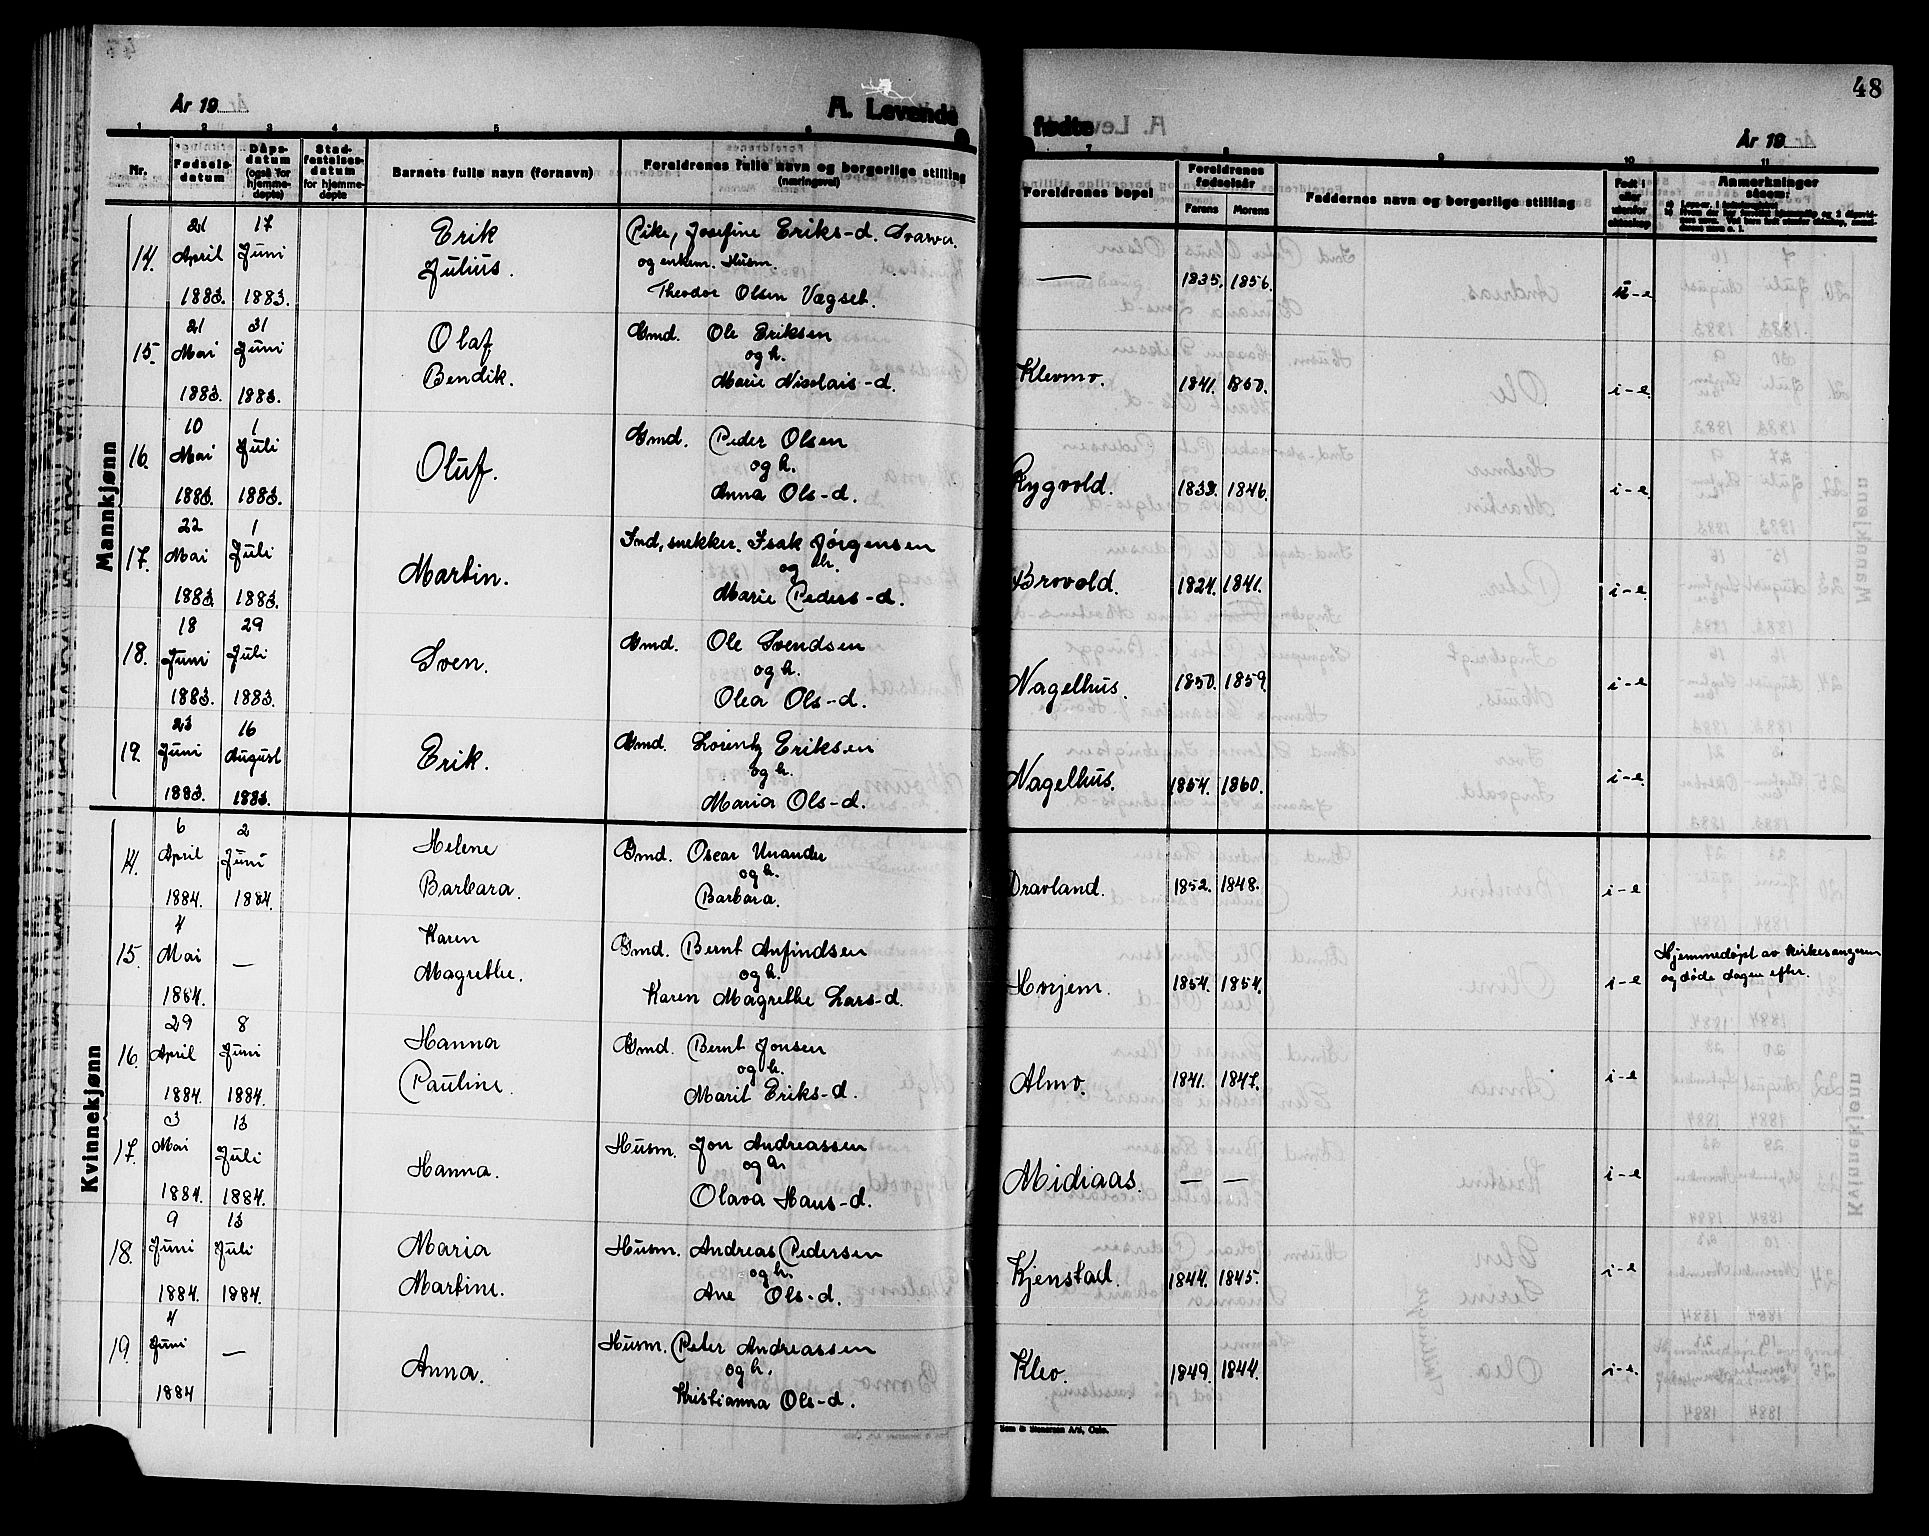 48
År 19
A. Levende
fødte
År 19
1 2 3 4 5 6 7 8 9 10 11
Nr.
Fødsels-
datum
Dåps-
datum
(også for
hjemme-
døpte)
Stad-
festelses-
datum
for hjemme-
døpte
Barnets fulle navn (fornavn)
Foreldrenes fulle navn og borgerlige stilling
(næringsvei)
Foreldrenes bopel
Foreldrenes
fødselsår
Farens
Morens
Faddernes navn og borgerlige stilling
Født i
eller
utenfor
ekteskap
Anmerkninger
såsom:
Mannkjønn
14. 21 April 1883. 17 Juni 1883. Erik Julius. Pike, Josefine Eriks-d. Svarva.
og enkem. Husm.
Theodor Olsen Vægset. — 1835. 1856. u-e
15. 21 Mai 1883. 31 Juni 1883. Olaf Bendik. Gmd. Ole Eriksen
og h.
Marie Nicolais-d. Klevmo. 1841. 1850. i-e
16. 10 Mai 1883. 1 Juli 1883. Oluf. Gmd. Peder Olsen
og h.
Anna Ols-d. Rygvold. 1839. 1846. i-e
17. 22 Mai 1883. 1 Juli 1883. Martin. Ind, snekker. Isak Jørgensen
og h.
Marie Peders-d. Brovold. 1824. 1841. i-e
18. 18 Juni 1883. 29 Juli 1883. Sven. Gmd. Ole Svendsen
og h.
Olea Ols-d. Nagelhus. 1850. 1859. i-e
19. 23 Juni 1883. 16 August 1883. Erik. Gmd. Lorentz Eriksen
og h.
Maria Ols-d. Nagelhus. 1854. 1860. i-e
Kvinnekjønn
14. 6 April 1884. 2 Juni 1884. Helene Barbara. Gmd. Oscar Unander
og h.
Barbara. Dravland. 1852. 1848. i-e
15. 4 Mai 1884. — Karen Magrethe. Gmd. Bernt Anfindsen
og h.
Karen Magrethe Lars-d. Hojem. 1854. 1854. i-e Hjemmedøpt av kirkesangeren
og døde dagen efter.
16. 29 April 1884. 8 Juni 1884. Hanna Pauline. Gmd. Bernt Jonsen
og h.
Marit Eriks-d. Almo. 1841. 1847. i-e
17. 3 Mai 1884. 13 Juli 1884. Hanna. Husm. Jon Andreassen
og h.
Olava Hans-d. Midiaas. — — i-e
18. 9 Juni 1884. 13 Juli 1884. Maria Martine. Husm. Andreas Pedersen
og h.
Ane Ols-d. Kjenstad. 1844. 1845. i-e
19. 4 Juni 1884 — Anna. Husm. Peter Andreassen
og h.
Kristianna Ols-d. Klev. 1849. 1844. i-e